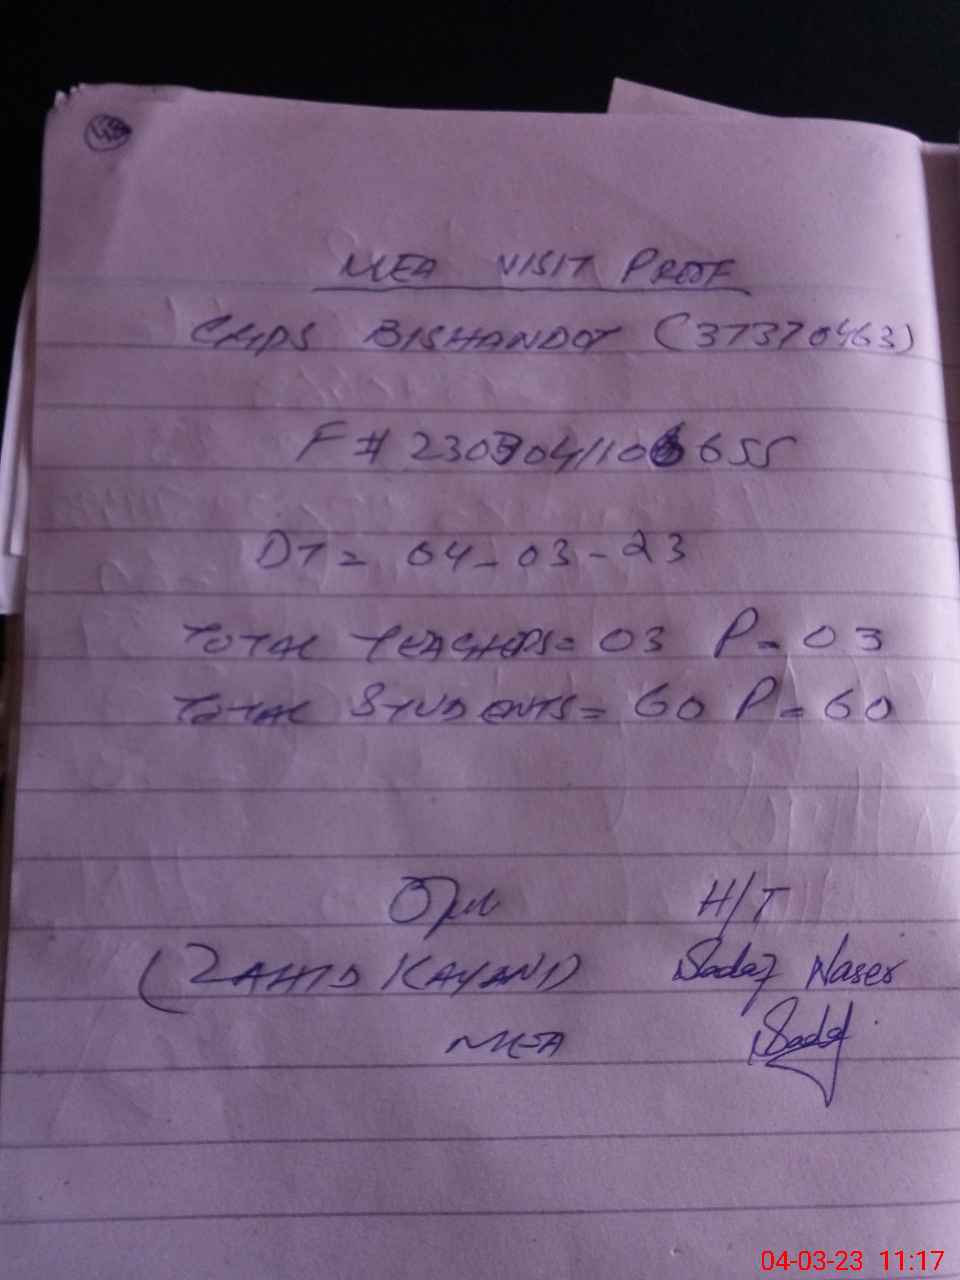 MEA VISIT PROOF
GMPS BISHANDOT (37370463)
F # 2303041106655
DT = 04-03-23
TOTAL TEACHERS = 03 P = 03
TOTAL STUDENTS = 60 P = 60
H/T
(ZAHID KAYANI) Sadaf Naser
MEA Sadaf
04-03-23 11:17